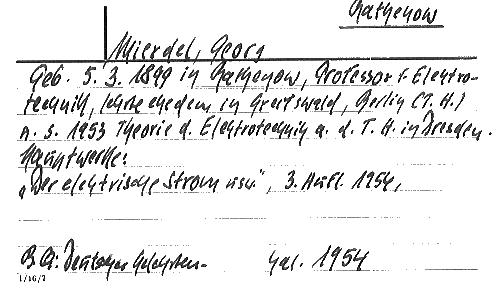 Rathenow
Mierdel, Georg
Geb. 5. 3. 1899 in Rathenow, Professor f. Elektro-
technik, in Greifswald, Berlin (T. H.)
u. s. 1953 Theorie d. Elektrotechnik a. d. T. H. in Dresden.
Hauptwerke:
„Der elektrische Strom usw", 3. Aufl. 1954,
Deutscher Gelehrten-
Kal. 1954
1/16/7